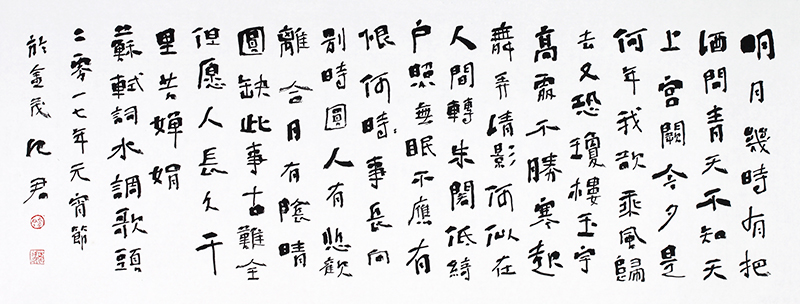 明月幾時有把
酒問青天不知天
上宮闕今夕是
何年我欲乘風歸
去又恐瓊樓玉宇
高處不勝寒起
舞弄清影何似在
人間轉朱閣低綺
户照無眠不應有
恨何時事長向
別時圓人有悲歡
離合月有陰晴
圓缺此事古難全
但愿人長久千
里共嬋娟
蘇軾詞水調歌頭
二零一七年元宵節
於金茂君